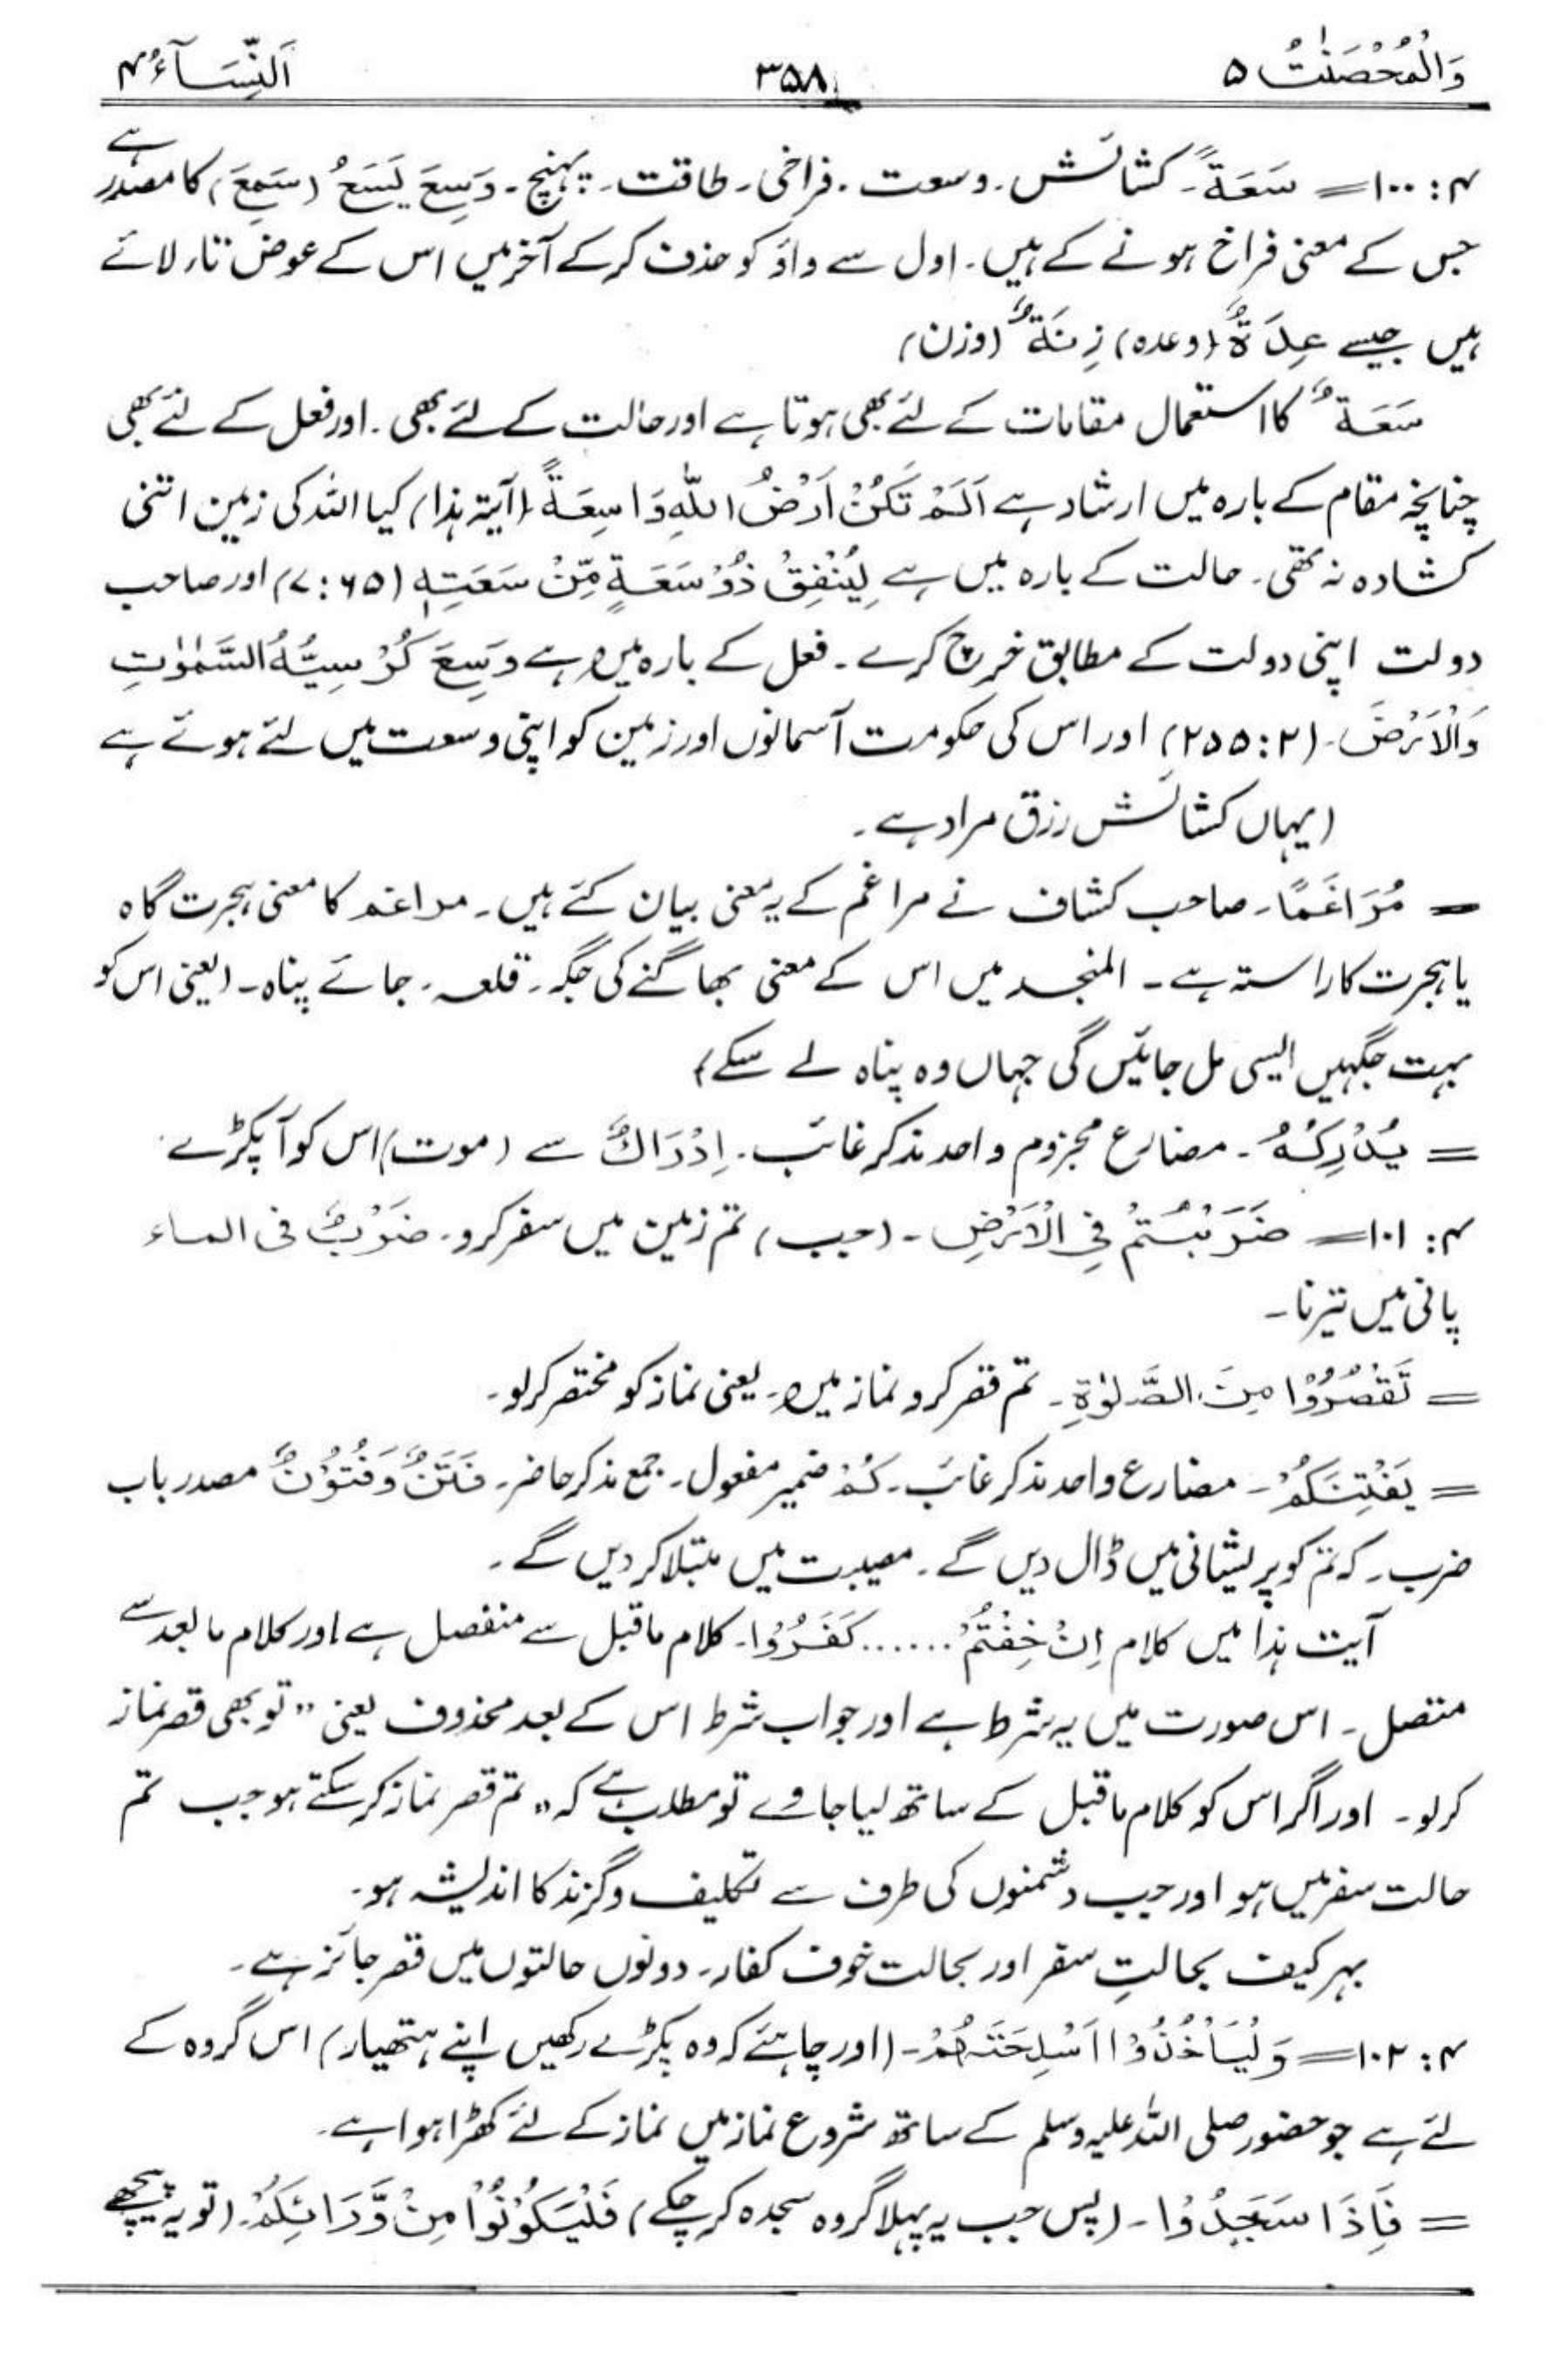 وَالْمُحْصَنٰتُ ۵ ۳۵۸ اَلنِّسَآءُ ۴
۴: ۱۰۰ = سَعَةً۔ کشائش۔ وسعت۔ فراخی۔ طاقت۔ پہنچ۔ وَسِعَ یَسَعُ (سَمِعَ) کا مصدر ہے
جس کے معنی فراخ ہونے کے ہیں۔ اول سے واؤ کو حذف کرکے آخر میں اس کے عوض تاء لائے
ہیں جیسے عِدَةٌ (وعدہ) زِنَةٌ (وزن)
سَعَةٌ کا استعمال مقامات کے لئے بھی ہوتا ہے اور حالت کے لئے بھی۔ اور فعل کے لئے بھی
چنانچہ مقام کے بارہ میں ارشاد ہے اَلَمْ تَکُنْ اَرْضُ اللّٰہِ وَاسِعَةً (آیۃ ہذا) کیا اللہ کی زمین اتنی
کشادہ نہ تھی۔ حالت کے بارہ میں ہے لِیُنْفِقْ ذُوْ سَعَةٍ مِّنْ سَعَتِہٖ (۶۵: ۷) اور صاحب
دولت اپنی دولت کے مطابق خرچ کرے۔ فعل کے بارہ میں ہے وَسِعَ کُرْسِیُّہُ السَّمٰوٰتِ
وَالْاَرْضَ۔ (۲: ۲۵۵) اور اس کی حکومت آسمانوں اور زمین کو اپنی وسعت میں لئے ہوئے ہے
(یہاں کشائش رزق مراد ہے۔
= مُرَاغَمًا۔ صاحب کشاف نے مراغم کے یہ معنی بیان کئے ہیں۔ مراغم کا معنی ہجرت گاہ
یا ہجرت کا راستہ ہے۔ المنجد میں اس کے معنی بھاگنے کی جگہ۔ قلعہ۔ جائے پناہ۔ (یعنی اس کو
بہت جگہیں ایسی مل جائیں گی جہاں وہ پناہ لے سکے)
= یُدْرِکْہُ۔ مضارع مجزوم واحد مذکر غائب۔ اِدْرَاكٌ سے (موت) اس کو آپکڑے
۴: ۱۰۱ = ضَرَبْتُمْ فِی الْاَرْضِ۔ (جب) تم زمین میں سفر کرو۔ ضَرْبٌ فی الماء
پانی میں تیرنا۔
= تَقْصُرُوْا مِنَ الصَّلٰوةِ۔ تم قصر کرو نماز میں۔ یعنی نماز کو مختصر کرلو۔
= یَفْتِنَکُمْ۔ مضارع واحد مذکر غائب۔ کُمْ ضمیر مفعول۔ جمع مذکر حاضر۔ فَتَنٌ وَفُتُوْنٌ مصدر باب
ضرب۔ کہ تم کو پریشانی میں ڈال دیں گے۔ مصیبت میں مبتلا کر دیں گے۔
آیت ہذا میں کلام اِنْ خِفْتُمْ ...... کَفَرُوْا۔ کلام ماقبل سے منفصل ہے اور کلام مابعد سے
متصل۔ اس صورت میں یہ شرط ہے اور جواب شرط اس کے بعد محذوف یعنی "تو بھی قصر نماز
کرلو۔ اور اگر اس کو کلام ماقبل کے ساتھ لیا جاوے تو مطلب ہے کہ "تم قصر نماز کر سکتے ہو جب تم
حالت سفر میں ہو اور جب دشمنوں کی طرف سے تکلیف و گزند کا اندیشہ ہو۔
بہر کیف بحالتِ سفر اور بحالت خوف کفار۔ دونوں حالتوں میں قصر جائز ہے۔
۴: ۱۰۲ = وَلْیَاْخُذُوْا اَسْلِحَتَہُمْ۔ (اور چاہئے کہ وہ پکڑے رکھیں اپنے ہتھیار) اس گروہ کے
لئے ہے جو حضور صلی اللہ علیہ وسلم کے ساتھ شروع نماز میں نماز کے لئے کھڑا ہوا ہے۔
= فَاِذَا سَجَدُوْا۔ (پس جب یہ پہلا گروہ سجدہ کر چکے) فَلْیَکُوْنُوْا مِنْ وَّرَائِکُمْ۔ (تو یہ پیچھے